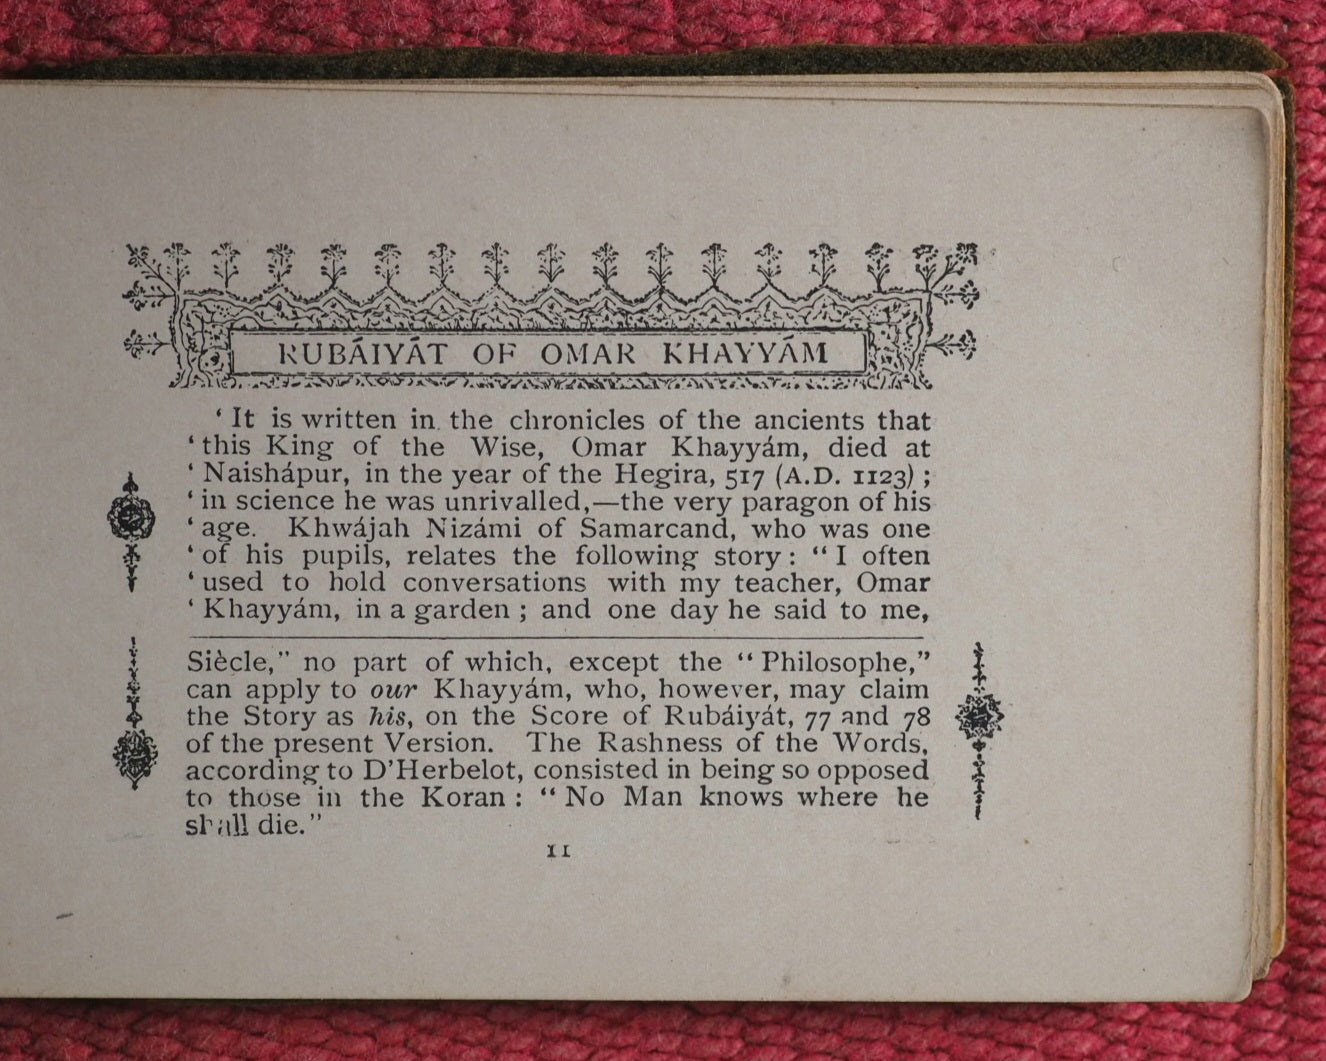 RUBÁIYÁT OF OMAR KHAYYÁM
‘ It is written in the chronicles of the ancients that
‘ this King of the Wise, Omar Khayyám, died at
‘ Naishápur, in the year of the Hegira, 517 (A.D. 1123) ;
‘ in science he was unrivalled,—the very paragon of his
‘ age. Khwájah Nizámi of Samarcand, who was one
‘ of his pupils, relates the following story : “ I often
‘ used to hold conversations with my teacher, Omar
‘ Khayyám, in a garden ; and one day he said to me,
Siècle,” no part of which, except the “ Philosophe,”
can apply to our Khayyám, who, however, may claim
the Story as his, on the Score of Rubáiyát, 77 and 78
of the present Version. The Rashness of the Words,
according to D’Herbelot, consisted in being so opposed
to those in the Koran : “ No Man knows where he
shall die.”
11